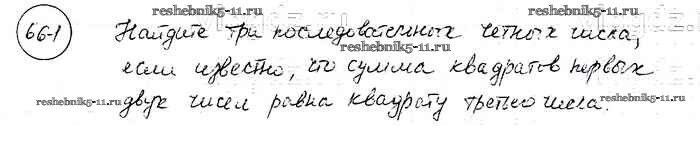 reshebnik5-11.ru reshebnik5-11.ru
66-1 Найдите три последовательных четных числа,
если известно, что сумма квадратов первых
reshebnik5-11.ru reshebnik5-11.ru
двух чисел равна квадрату третьего числа.
reshebnik5-11.ru